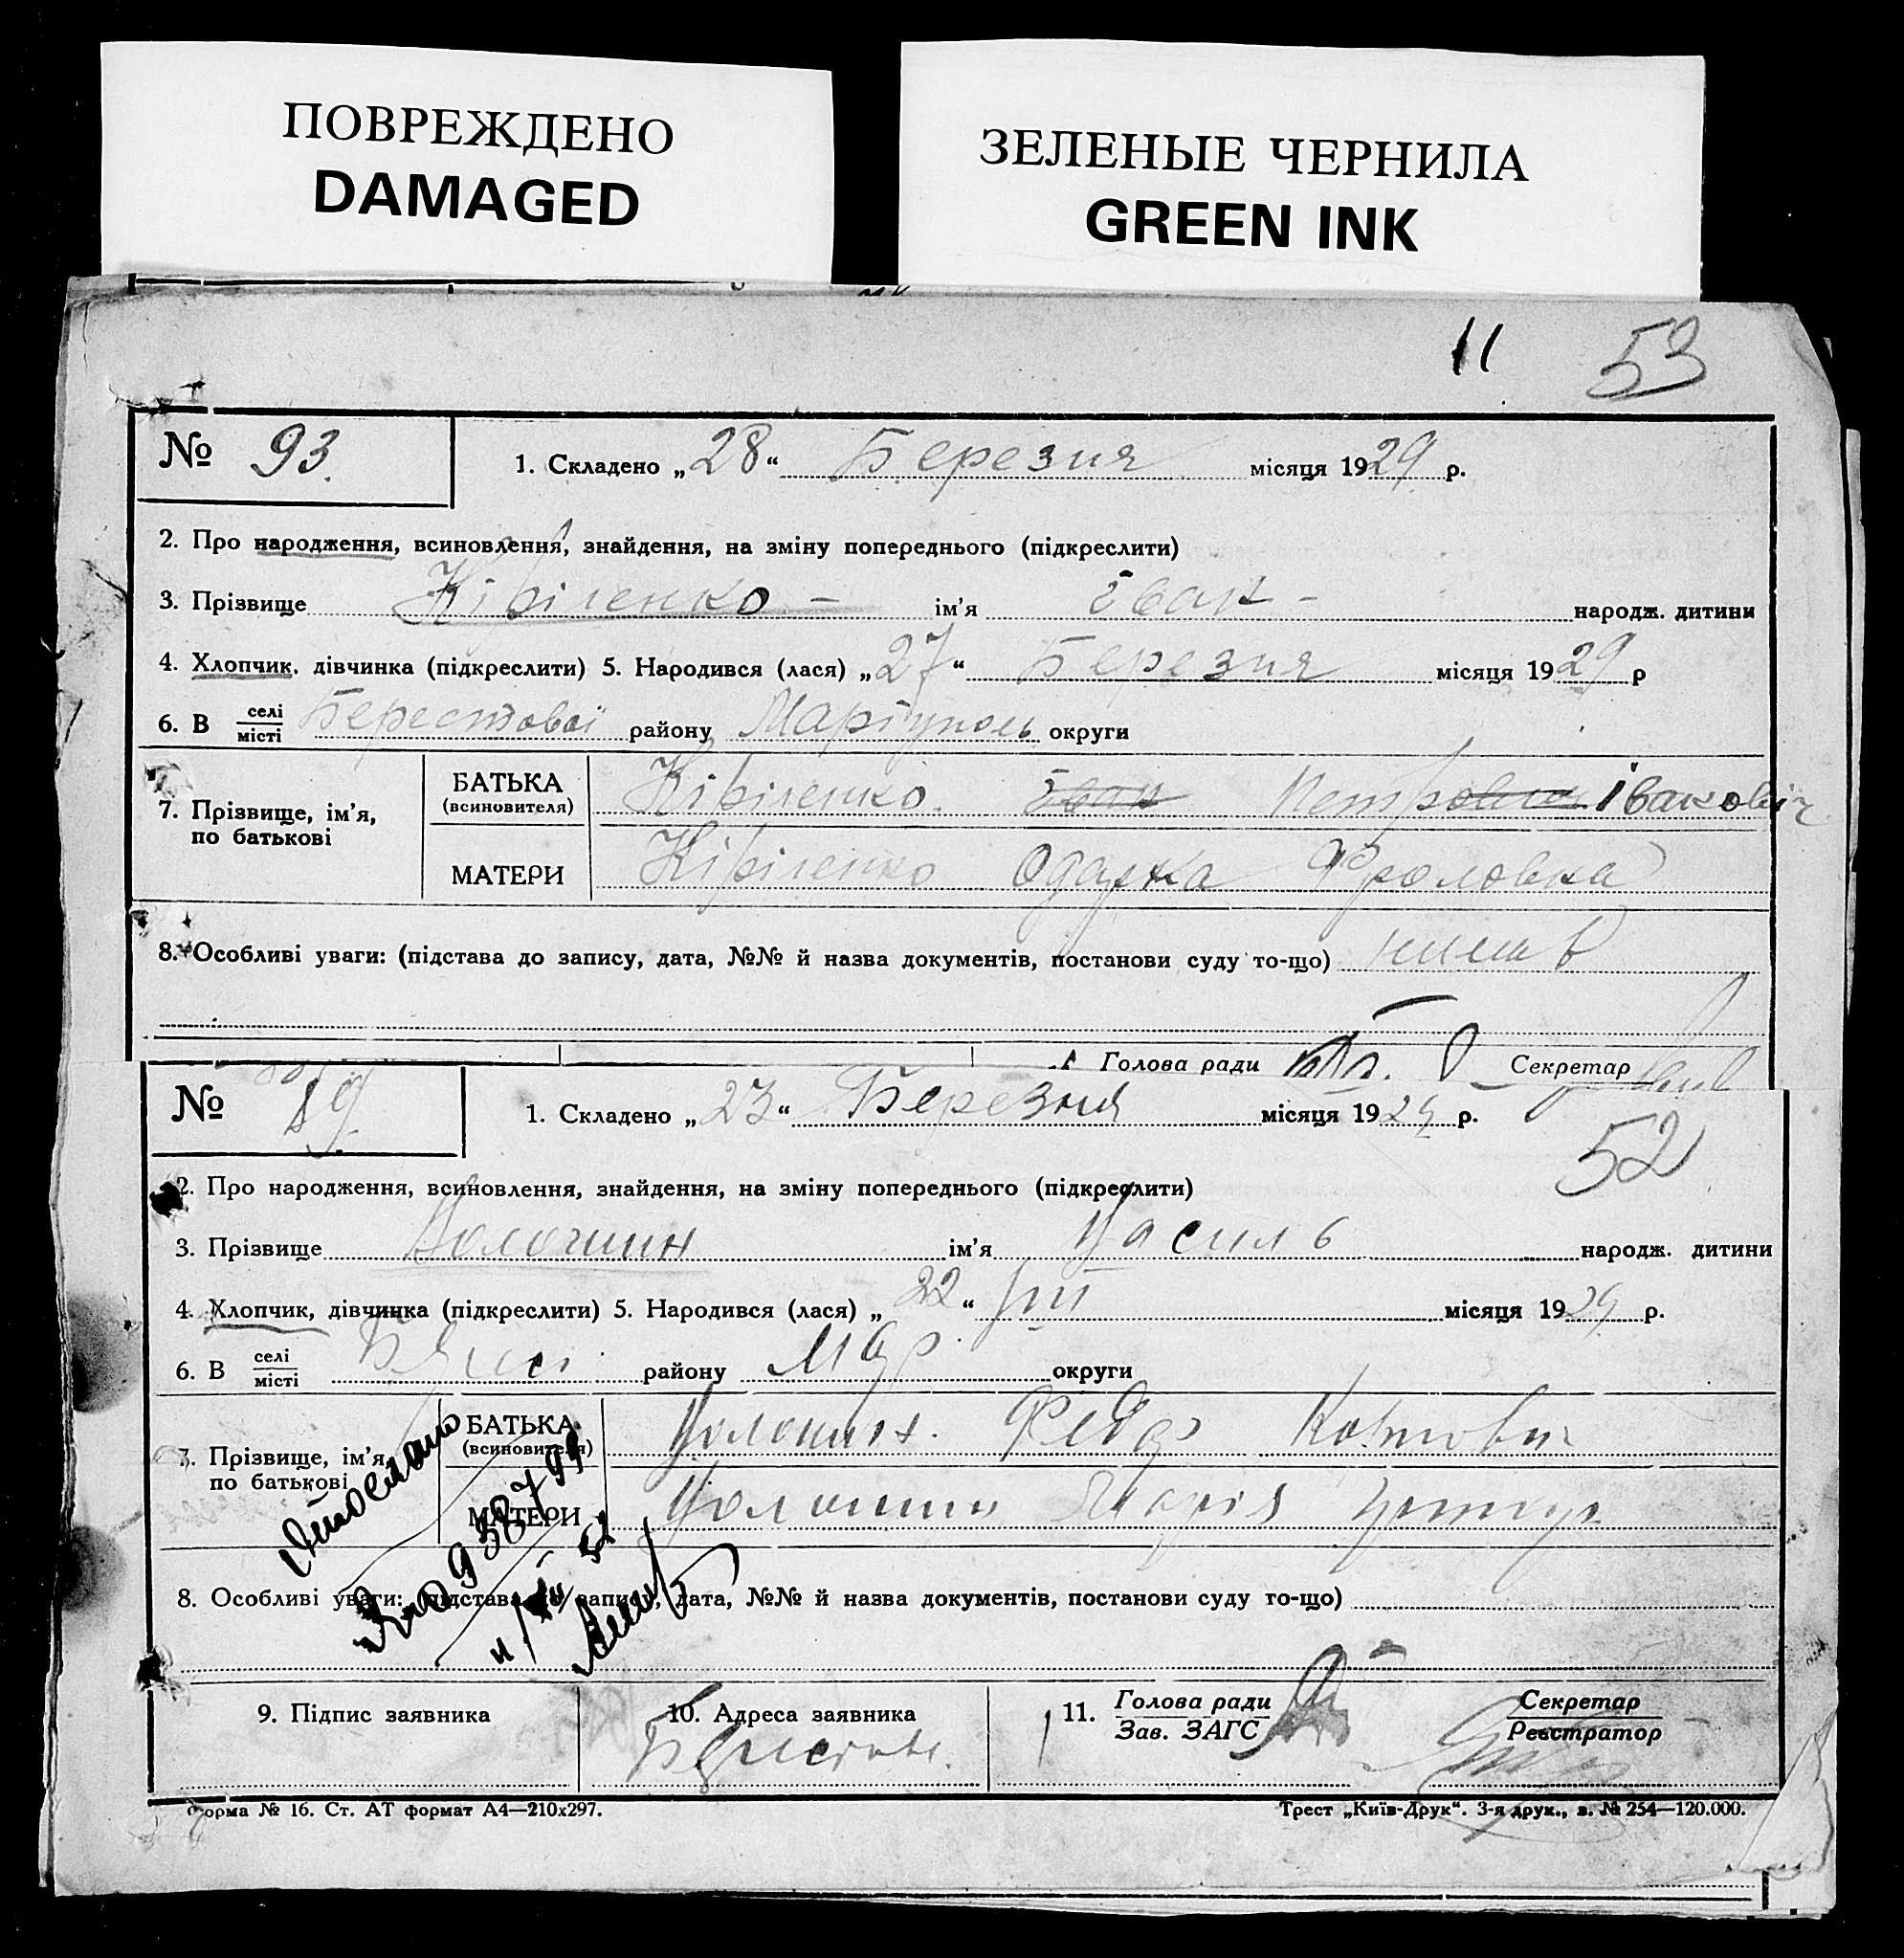 ПОВРЕЖДЕНО
DAMAGED
ЗЕЛЕНЫЕ ЧЕРНИЛА
GREEN INK
11 53
№ 93. 1. Складено „28“ Березня місяця 1929 р.
2. Про народження, всиновлення, знайдення, на зміну попереднього (підкреслити)
3. Прізвище Кіріленко – ім'я Іван – народж. дитини
4. Хлопчик, дівчинка (підкреслити) 5. Народився (лася) „27“ Березня місяця 1929 р
6. В селі/місті Берестової району Маріуполь округи
7. Прізвище, ім'я, по батькові
БАТЬКА (всиновителя) Кіріленко Іван Іванович
МАТЕРИ Кіріленко Одарка Фроловна
8. Особливі уваги: (підстава до запису, дата, №№ й назва документів, постанови суду то-що)
Голова ради Секретар
№ 89. 1. Складено „23“ Березня місяця 1929 р.
52
2. Про народження, всиновлення, знайдення, на зміну попереднього (підкреслити)
3. Прізвище Волошин ім'я Василь народж. дитини
4. Хлопчик, дівчинка (підкреслити) 5. Народився (лася) „22“ III місяця 1929 р.
6. В селі/місті району Мар. округи
7. Прізвище, ім'я, по батькові
БАТЬКА (всиновителя) Волошин Федор
МАТЕРИ Волошин Марія
8. Особливі уваги: (підстава до запису, дата, №№ й назва документів, постанови суду то-що)
9. Підпис заявника 10. Адреса заявника 11. Голова ради Секретар
Зав. ЗАГС Реєстратор
Форма № 16. Ст. АТ формат А4—210х297. Трест „Київ-Друк“. 3-я друк., з. № 254—120.000.